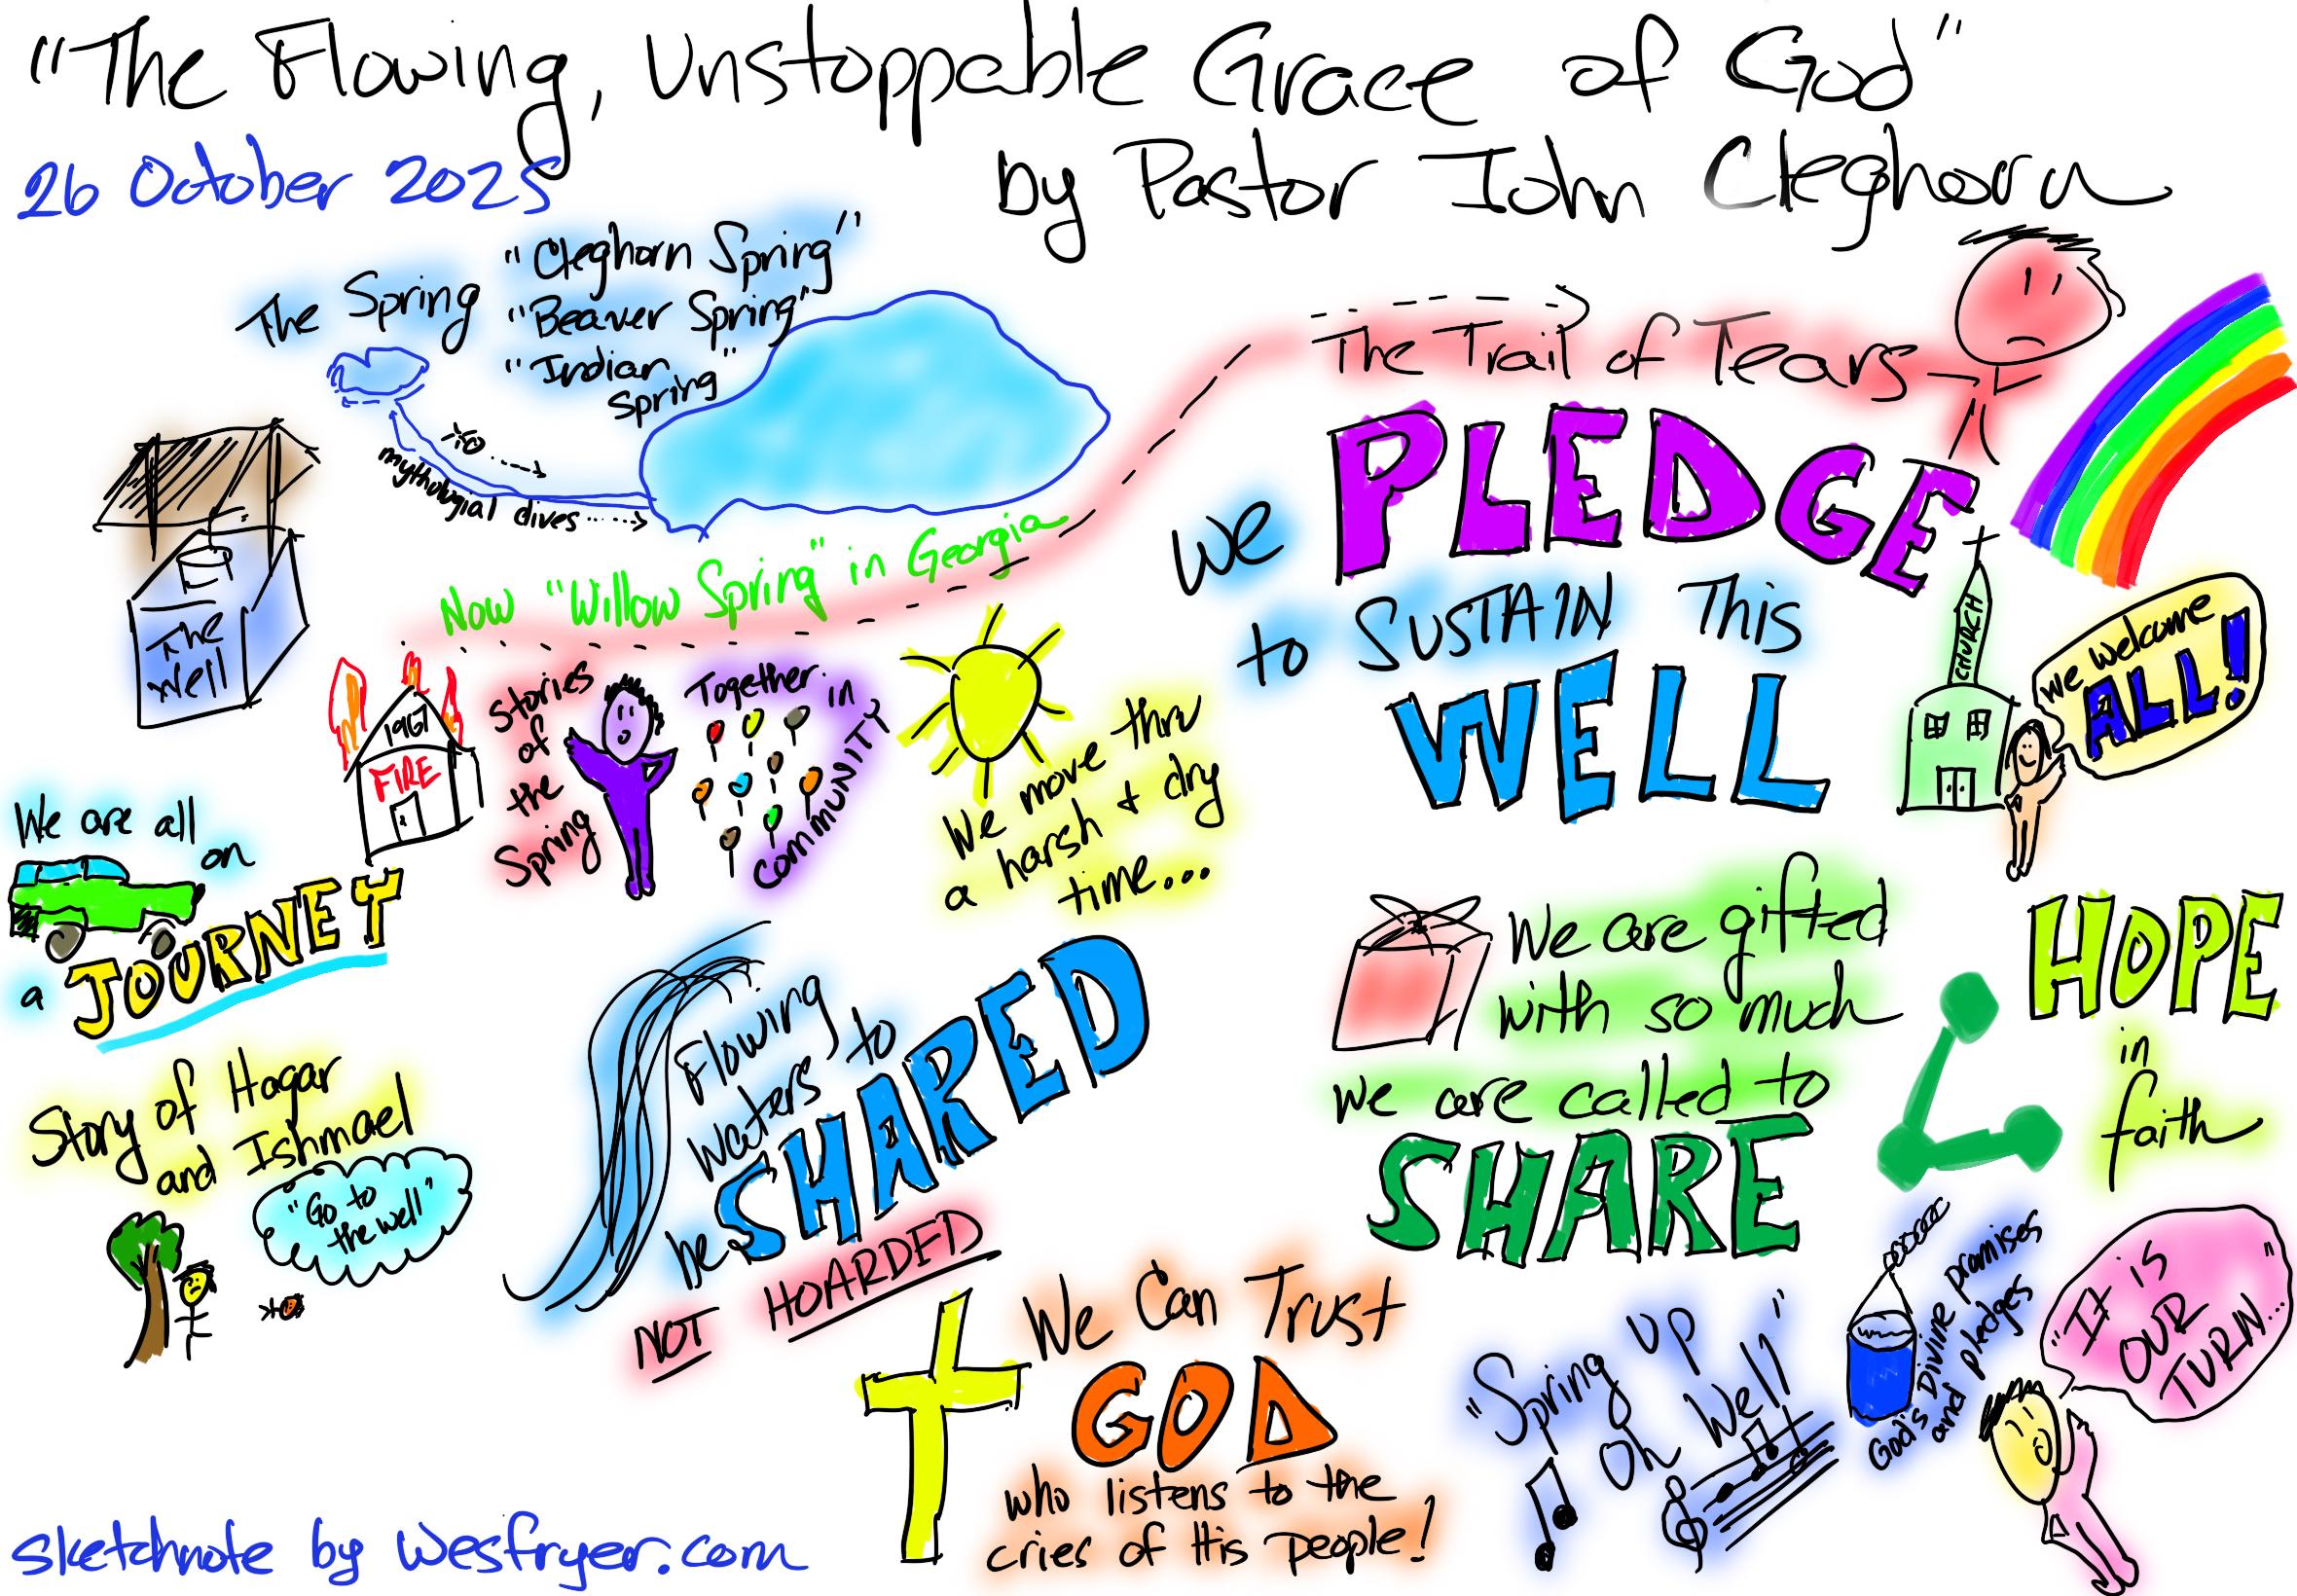 "The Flowing, Unstoppable Grace of God"
26 October 2025
by Pastor John Cleghorn
The Spring
"Cleghorn Spring"
"Beaver Spring"
"Indian Spring"
to
mythologial dives
Now "Willow Spring" in Georgia
The Trail of Tears
The
Well
1967
FIRE
Stories
of
the
Spring
Together in
COMMUNITY
We move thru
a harsh + dry
time...
We PLEDGE
to SUSTAIN This
WELL
CHURCH
We welcome
ALL!
We are all
on
a JOURNEY
Story of Hagar
and Ishmael
"Go to
the well"
Flowing
Waters to
be SHARED
NOT HOARDED
We are gifted
with so much
We are called to
SHARE
HOPE
in
faith
We Can Trust
GOD
who listens to the
cries of His people!
"Spring UP
Oh Well"
God's Divine promises
and pledges
"It is
OUR
TURN..."
Sketchnote by Wesfryer.com